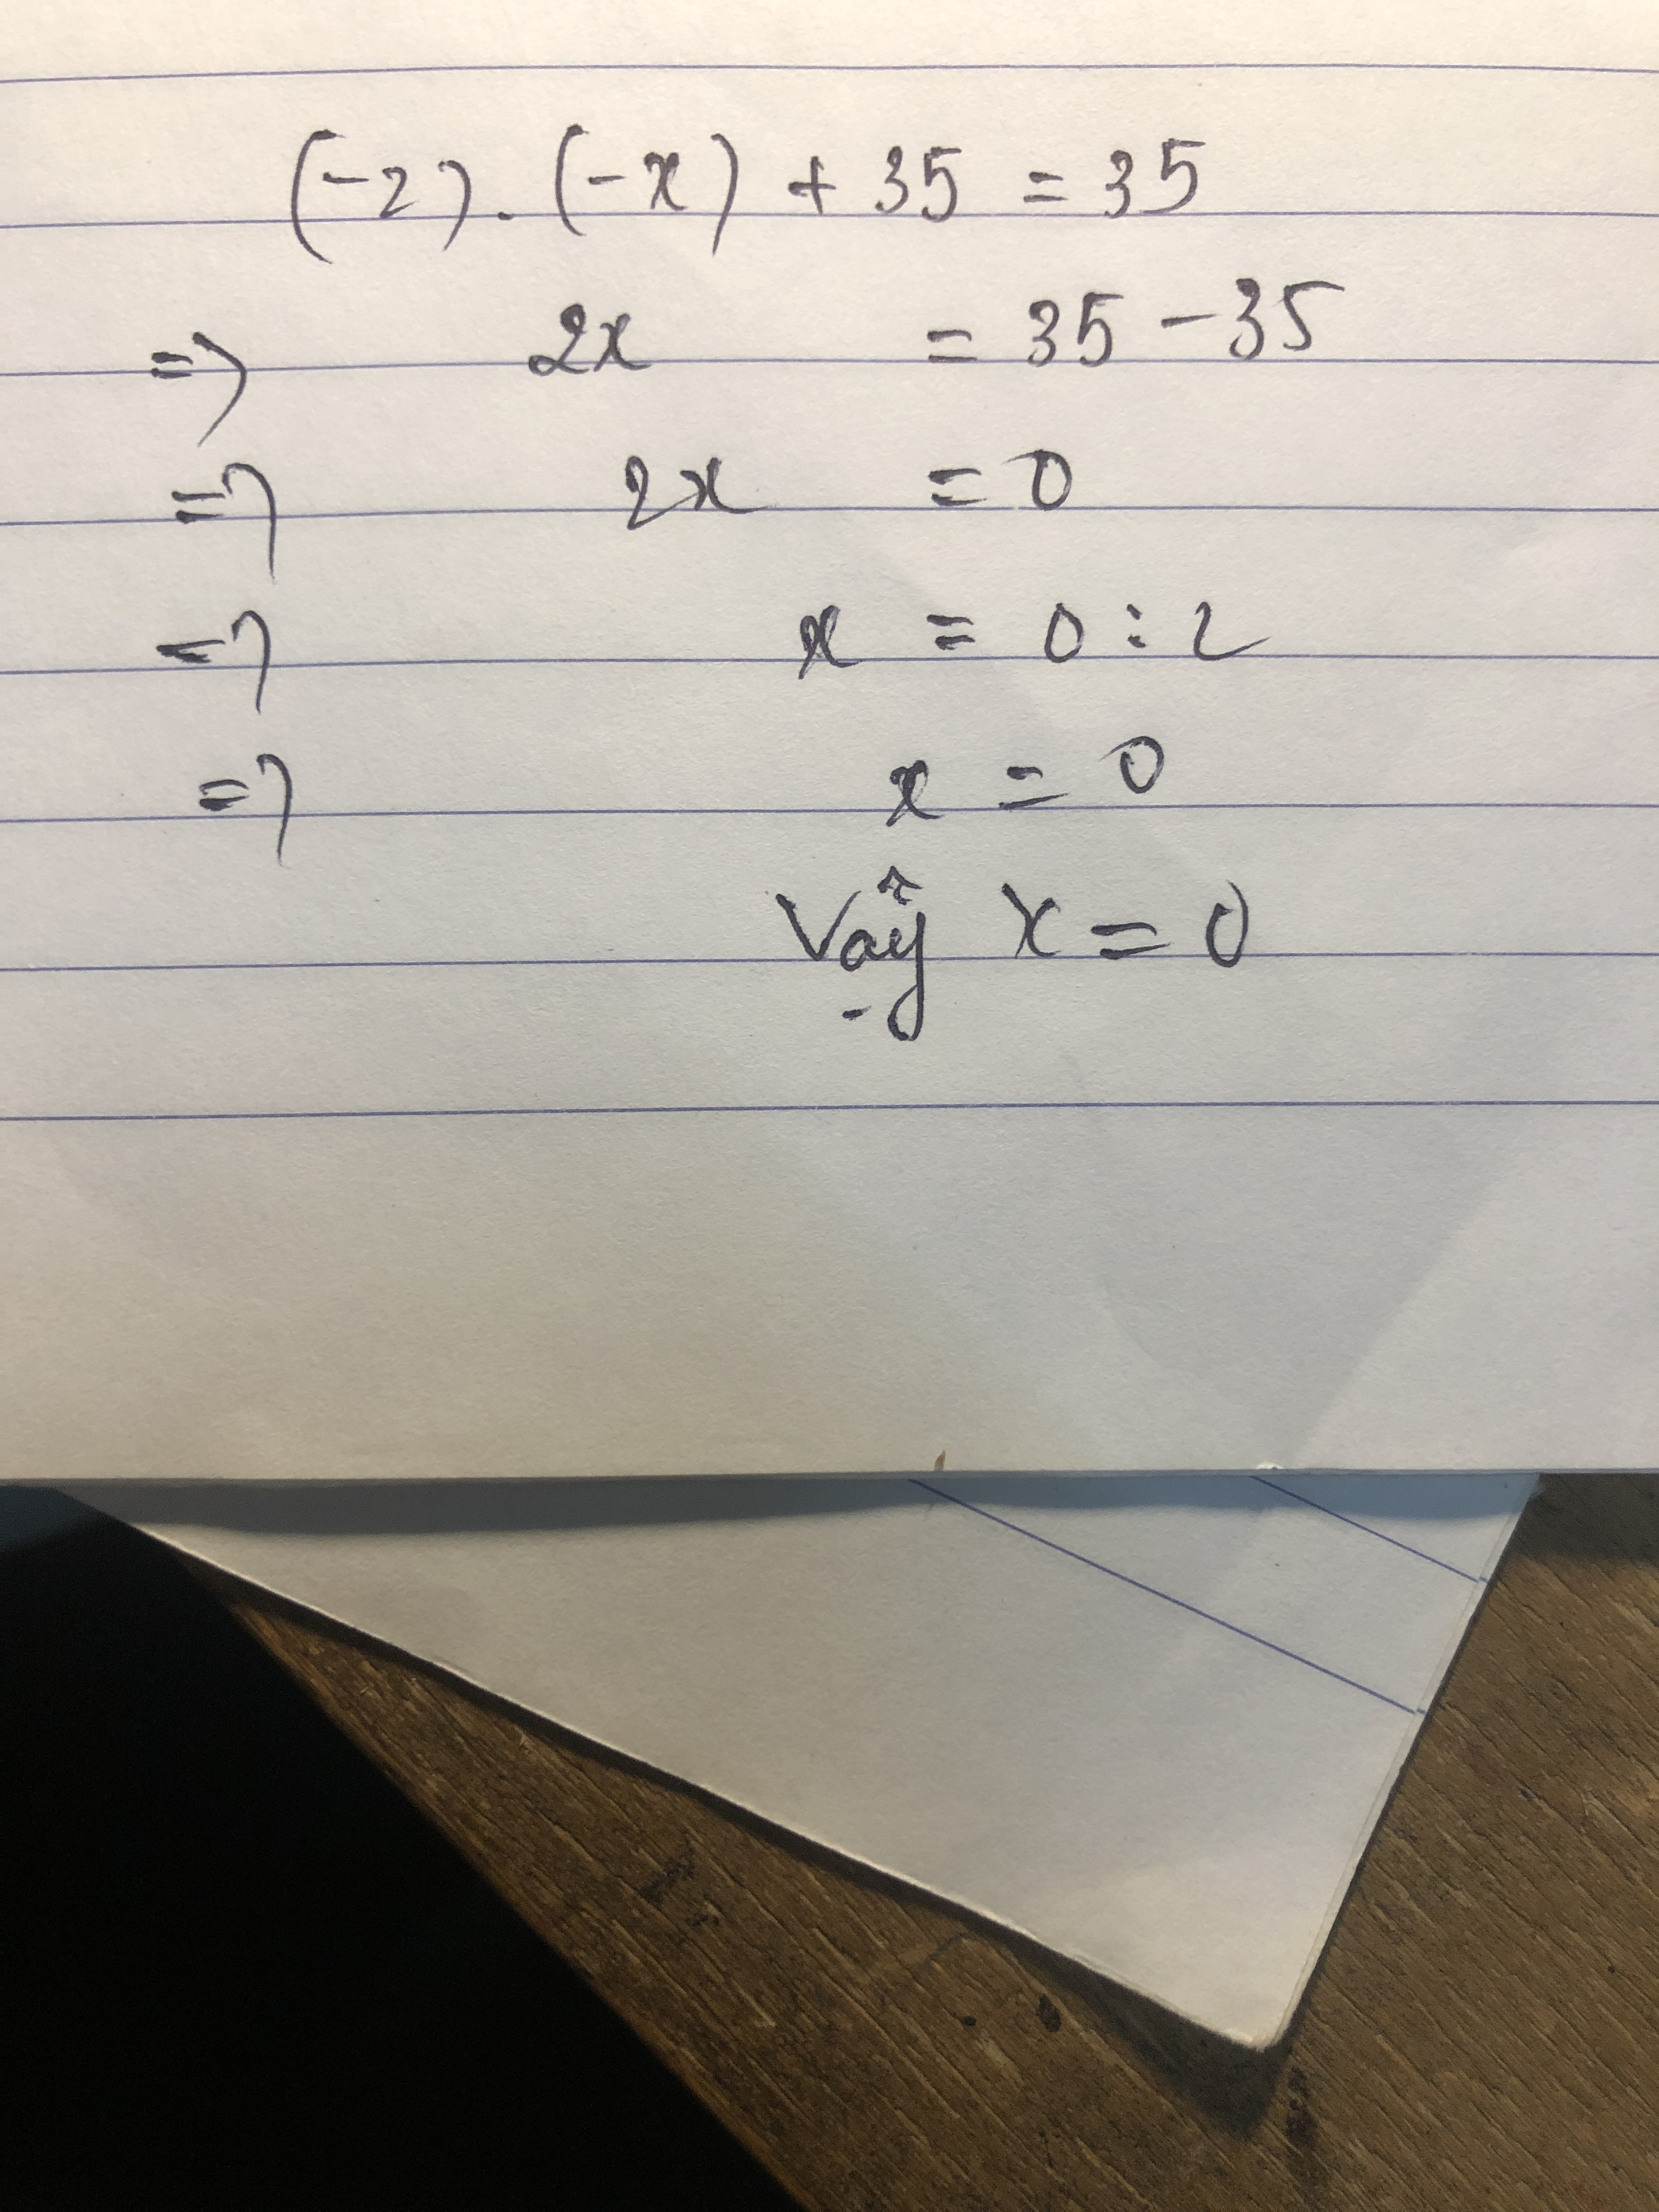 (-2). (-x) + 35 = 35
=> 2x = 35 - 35
=> 2x = 0
=> x = 0 : 2
=> x = 0
Vậy x = 0